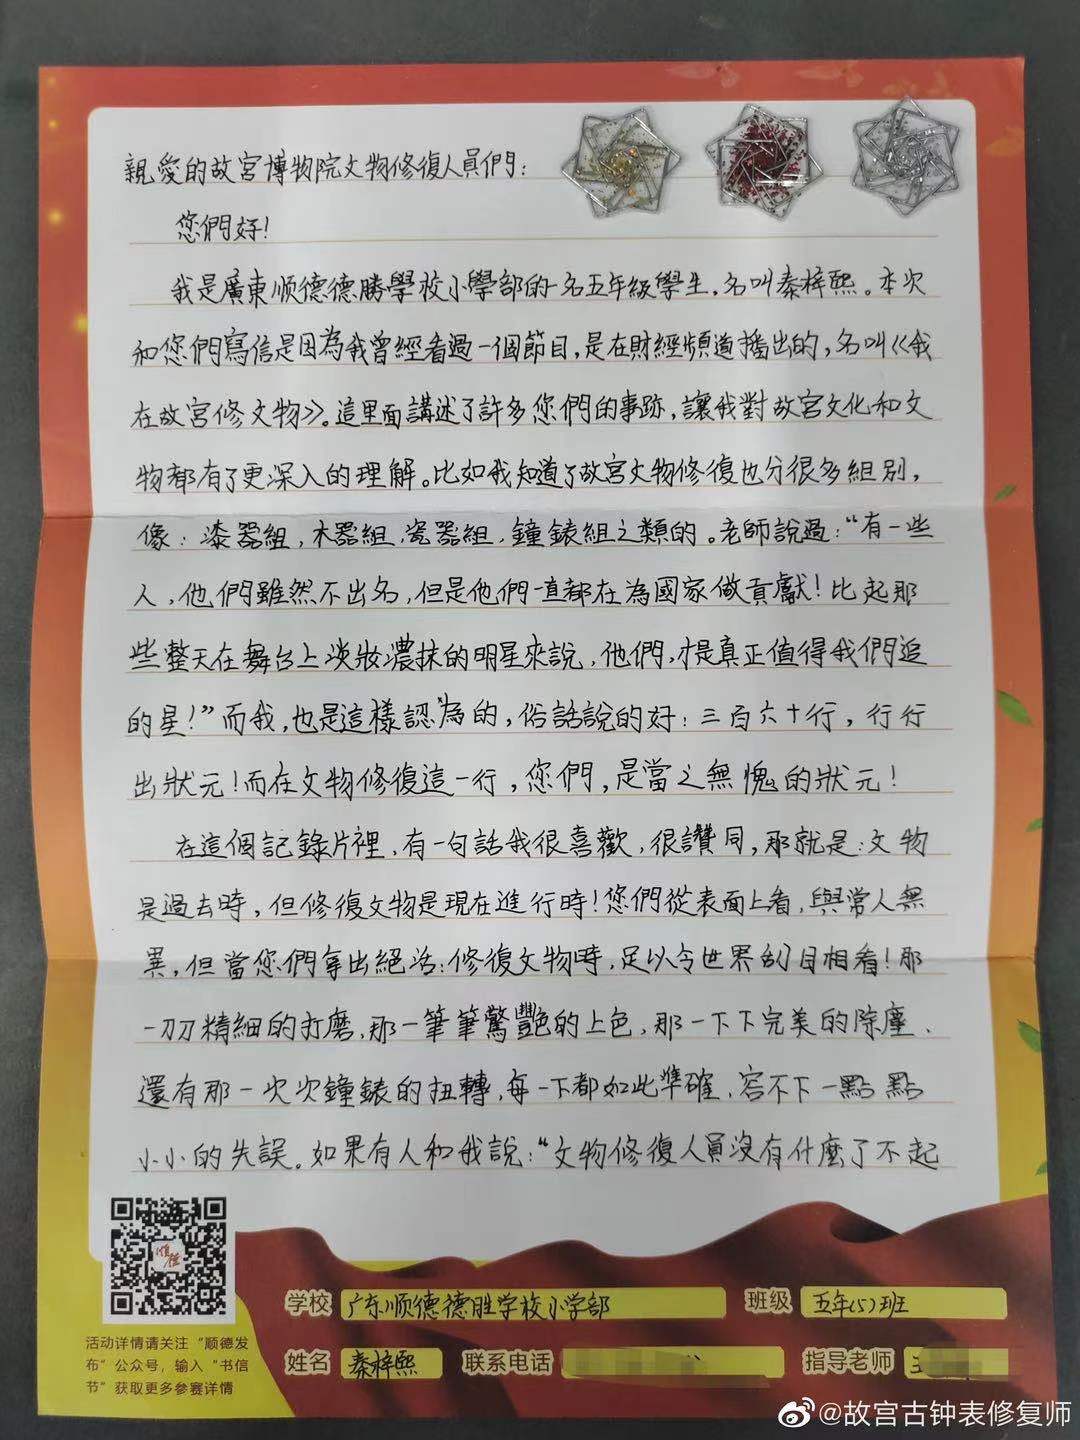 親愛的故宮博物院文物修復人員們：
您們好！
我是廣東顺德德勝學校小學部的一名五年級學生，名叫秦梓熙。本次
和您們寫信是因為我曾經看過一個節目，是在財經頻道播出的，名叫《我
在故宮修文物》。這里面講述了許多您們的事跡，讓我對故宮文化和文
物都有了更深入的理解。比如我知道了故宮文物修復也分很多組別，
像：漆器組，木器組，瓷器組，鐘錶組之類的。老師說過：“有一些
人，他們雖然不出名，但是他們一直都在為國家做貢獻！比起那
些整天在舞台上淡妝濃抹的明星來說，他們，才是真正值得我們追
的星！”而我，也是這樣認為的，俗話說的好：三百六十行，行行
出狀元！而在文物修復這一行，您們，是當之無愧的狀元！
在這個記錄片裡，有一句話我很喜歡，很讚同，那就是：文物
是過去時，但修復文物是現在進行時！您們從表面上看，與常人無
異，但當您們拿出絕活：修復文物時，足以令世界刮目相看！那
一刀刀精細的打磨，那一筆筆驚艷的上色，那一下下完美的除塵、
還有那一次次鐘錶的扭轉，每一下都如此準確，容不下一點點
小小的失誤。如果有人和我說：“文物修復人員沒有什麼了不起
学校 广东顺德德胜学校小学部
班级 五年(5)班
活动详情请关注“顺德发
布”公众号，输入“书信
节”获取更多参赛详情
姓名 秦梓熙
联系电话
指导老师 王
@故宫古钟表修复师